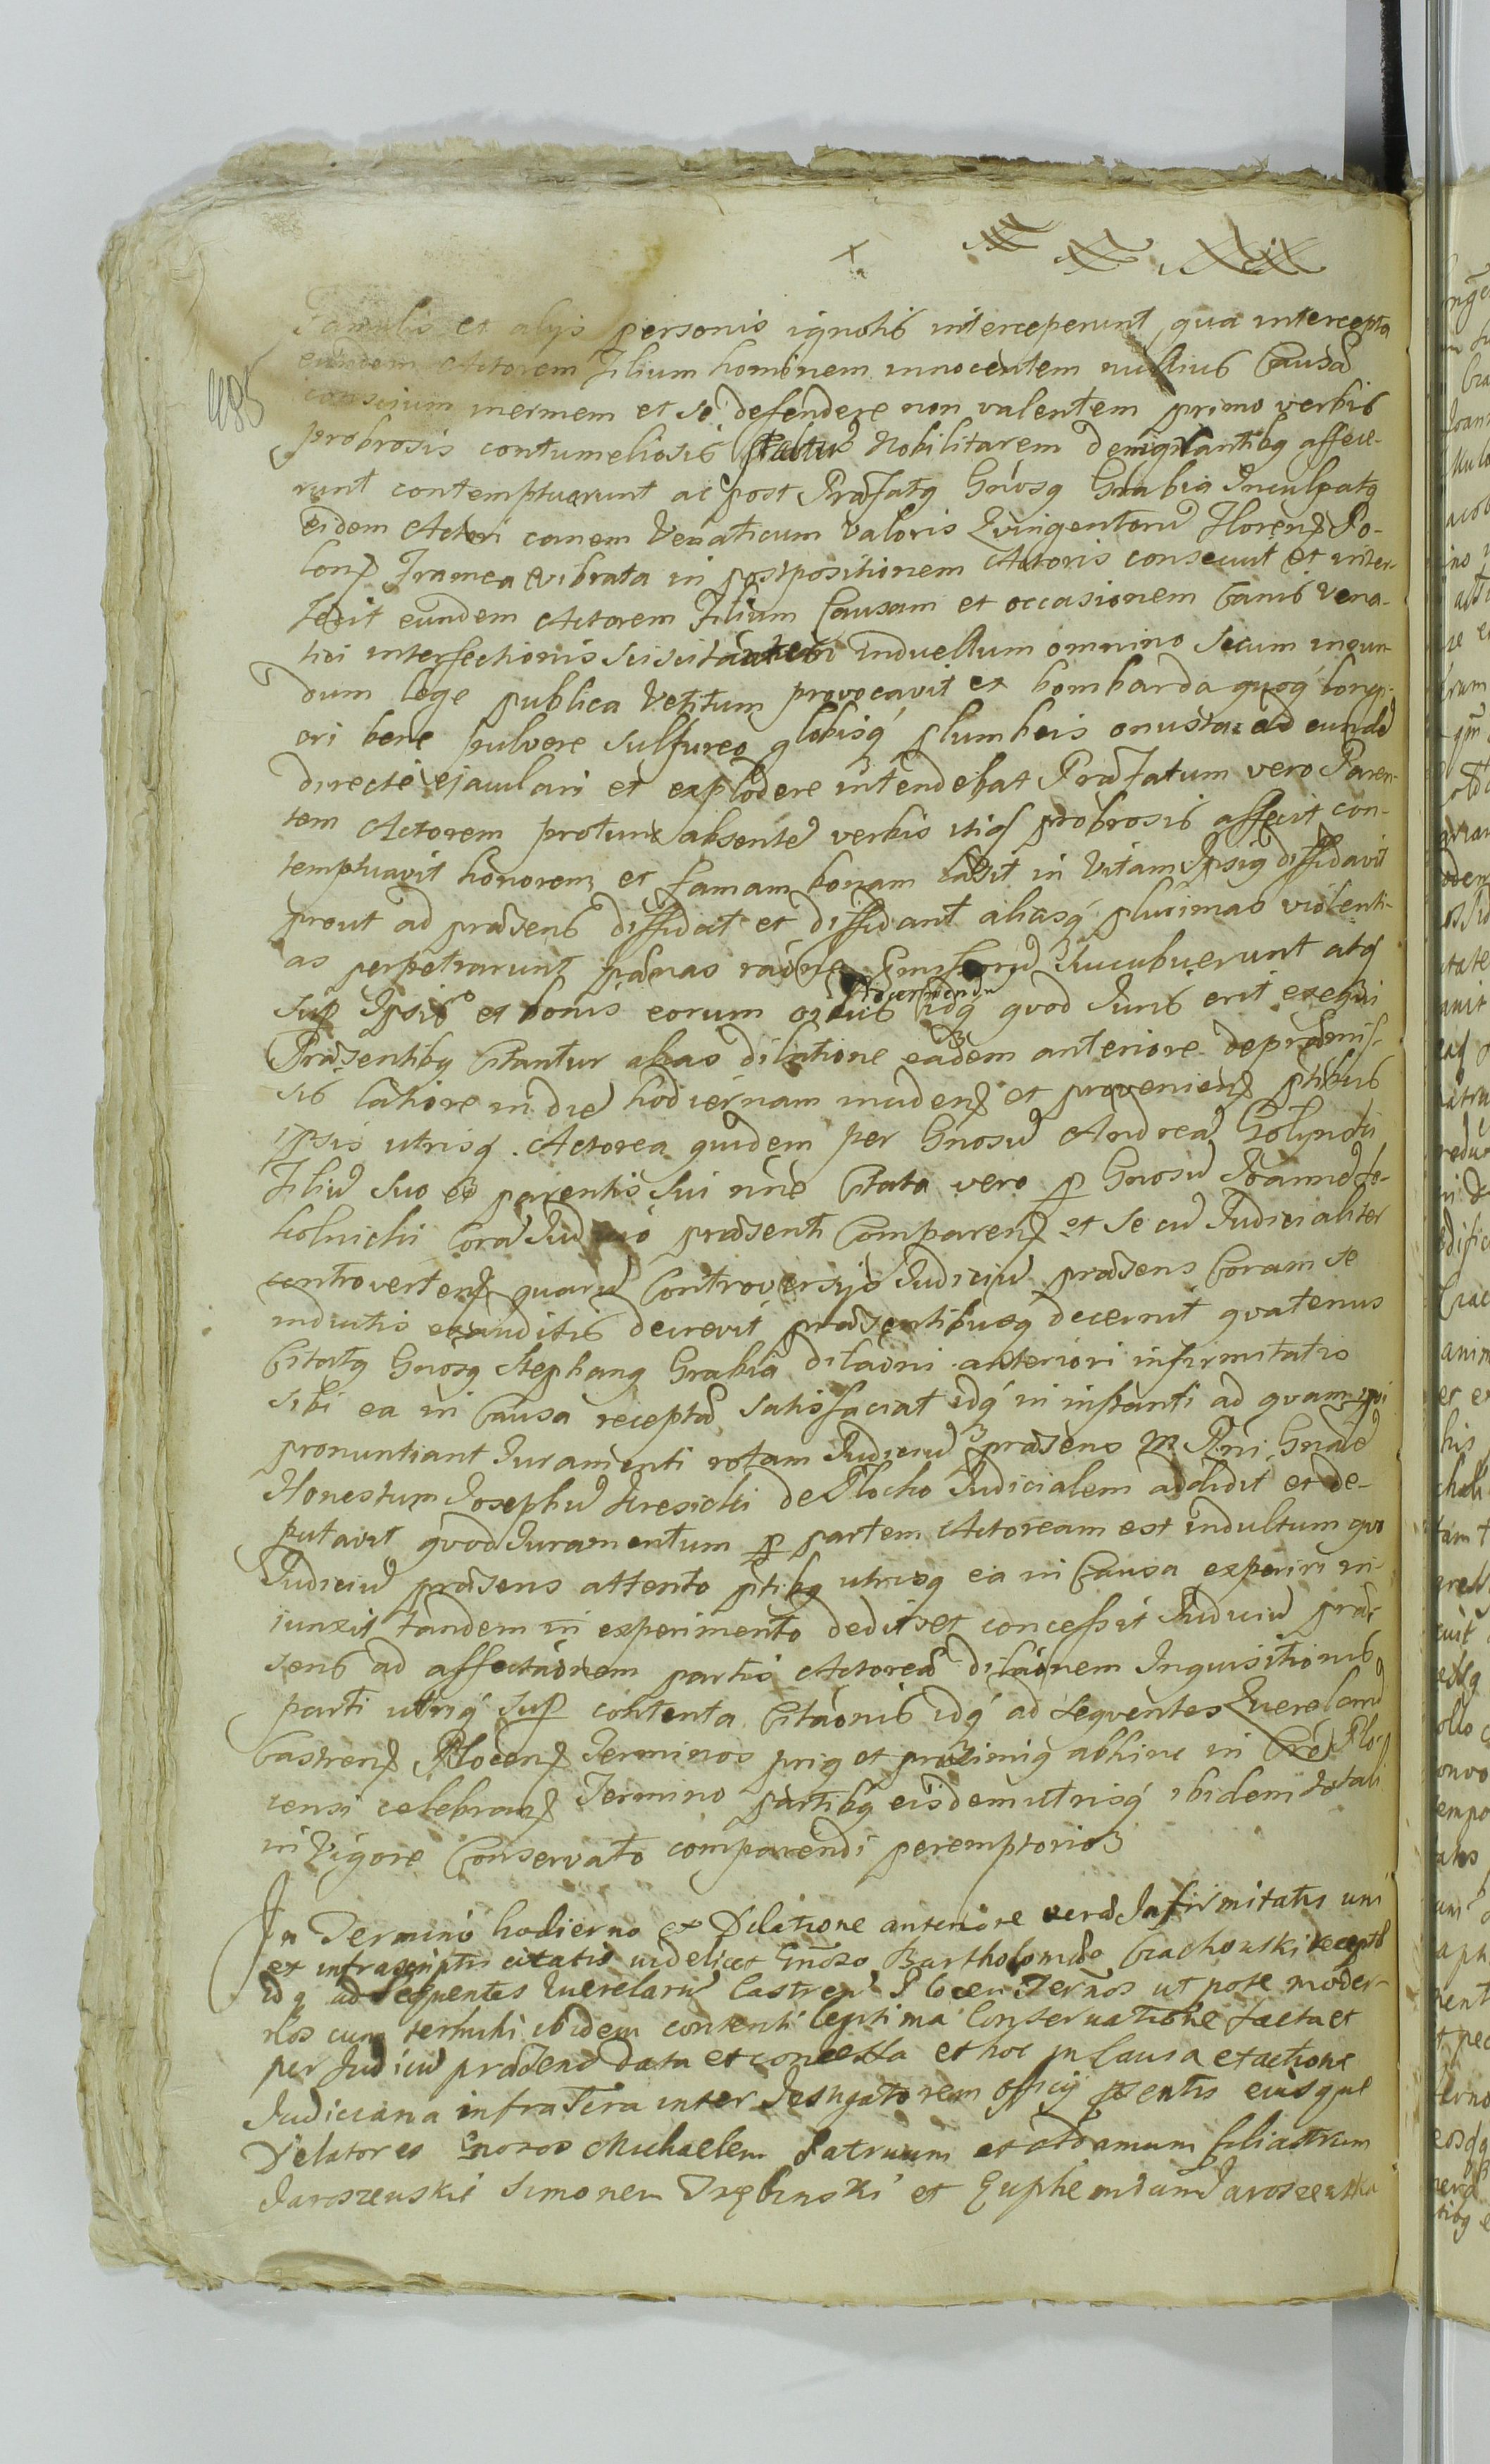 485
Famulis et alys personis ignotis interceperunt, qua intercepta
eundem Actorem Filium hominem innocentem nullius Causa
conscium inermem et se defendere non valentem primo verbis
probrosis contumeliosis Nobilitarem denigrantibq affece-
runt contemptuarunt ac post Præfatq Gnosq Grabia Inculpatq
eidem Actori canem Venaticum valoris Quingentoru Floren Po-
lon framea evibrata in postpositionem Actoris consecuit et inter-
fecit eundem Actorem Filium Causam et occasionem Canis Vena-
tici interfectionis sciscitantem induellum omnino secum ineun-
dum lege publica Vetitum provocavit ex bombarda quoq longi-
ori bene pulvere sulfureo globisq plumbeis onusta ad eunde
directe ejaculari et explodere intendebat Præfatum vero Paren-
tem Actorem protunc absente verbis itiq probrosis affecit con-
temptuavit honorem et famam bonam læsit in Vitam Ipsiq diffidavit
prout ad præsens diffidat et diffidant aliasq plurimas violenti-
as perpetrarunt pænas succubuerunt atq
sup Ipsis et bonis eorum oibus decernendu idq quod Juris erit exequi
Præsentibq Citantur alias dilatione eadem anteriore de præmis-
sis latiore in die hodiernam inciden et provenien ptibus
ipsis utrisq Actorea quidem per Gnosu Andrea Golynski
Filiu suo et parentis sui nne Citata vero p Gnosu Joanne So-
kolnicki Cora Judicio præsenti Comparen et se cu Judicialiter
controverten quaru Controversys Judiciu præsens Coram se
inductis exauditis decrevit præsentibusq decernit quatenus
Citatq Gnosq Stephanq Grabia dilaoni anteriori infirmitatis
sibi ea in Causa recepta satisfaciat idq in instanti ad quam
pronuntiant Juramenti rotam Judiciu præsens M Pni Gnale
Honestum Josephu Kresicki de Plocko Judicialem addidit et de-
putavit quod Juramentum p partem Actoream est indultum quo
Judiciu præsens attento ptibq utrisq ea in Causa experiri in-
iunxit tandem in experimento dedit et concessit Judiciu præ-
sens ad affectaonem partis Actoreæ dilaonem Inquisitionis
parti utriq sup contenta Citaonis idq ad sequentes Querelaru
Castren Plocen Terminos priq et proximiq abhinc in Plo-
censi celebran Termino partibq eisdem utrisq ibidem totali
in Vigore Conservato comparendi peremptorio
In Termino hodierno ex Dilatione anteriore veræ Infirmitatis uni
ex infrascriptis citatis videlicet Gnoso Bartholomæo Ciachowski recepta
idq ad sequentes Querelaru Castren Plocen Ternos ut pote moder-
nos cum termini ibidem contenti legitima Conservatione facta et
per Judiciu præsens data et concessa et hoc in Causa et actione
Judiciaria infra Scra inter Instigatorem officij psentis eiusque
Delatores Gnosos Michaelem Patruum et Adamum filiastrum
Jaroszewskie Simonem Trębinski et Euphemiam Jaroszewska